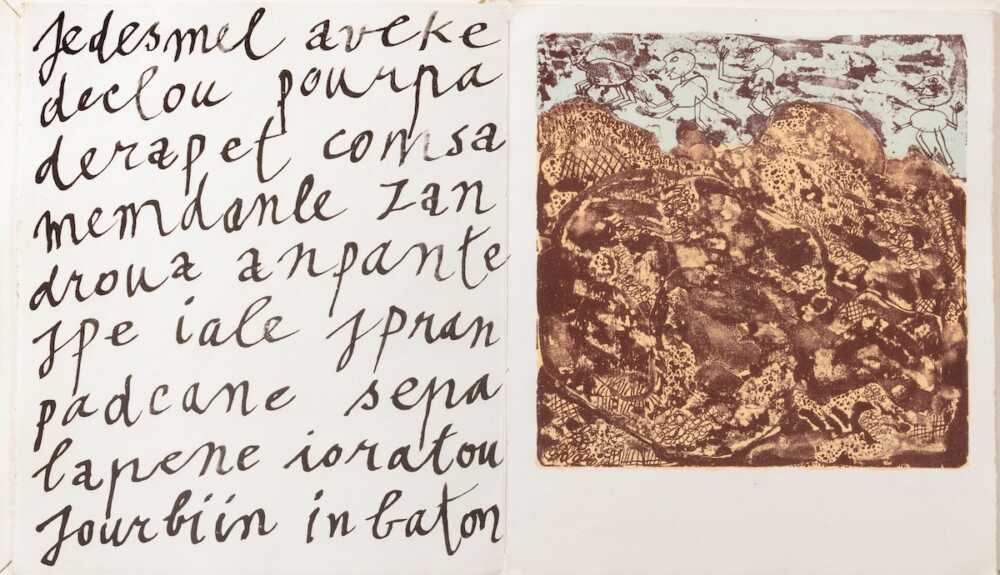 jedesmel aveke
declou pourpa
derapet comsa
memdanle zan
droua anpante
jpe iale jpran
padcane sepa
lapene ioratou
jourbiin inbaton